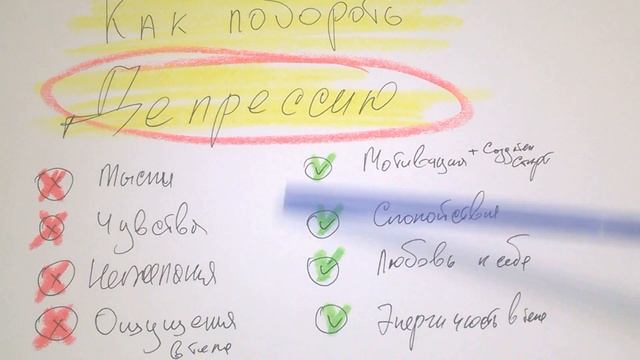 Как побороть
Депрессию
Мысли
Чувства
Нежелания
Ощущения
в теле
Мотивация +
Спокойствия
Любовь к себе
Энергичность в теле